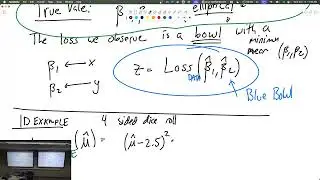 True Vale: β elliptical
The loss we observe is a bowl with a
minimum
near (β₁, β₂)
β₁ ← x
β₂ ← y
z = Loss_DATA(β̂₁, β̂₂)
Blue Bowl
1D EXAMPLE 4 sided dice roll
(μ̂) = (μ̂-2.5)² =